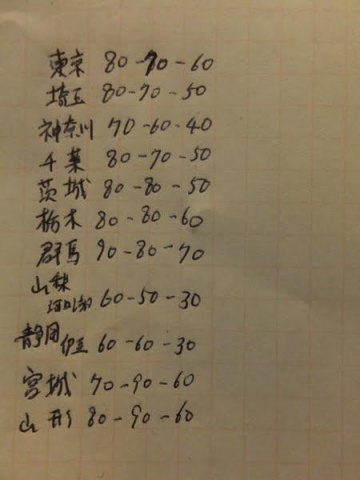 東京 80-70-60
埼玉 80-70-50
神奈川 70-60-40
千葉 80-70-50
茨城 80-80-50
栃木 80-80-60
群馬 90-80-70
山梨
河口湖 60-50-30
静岡 伊豆 60-60-30
宮城 70-90-60
山形 80-90-60